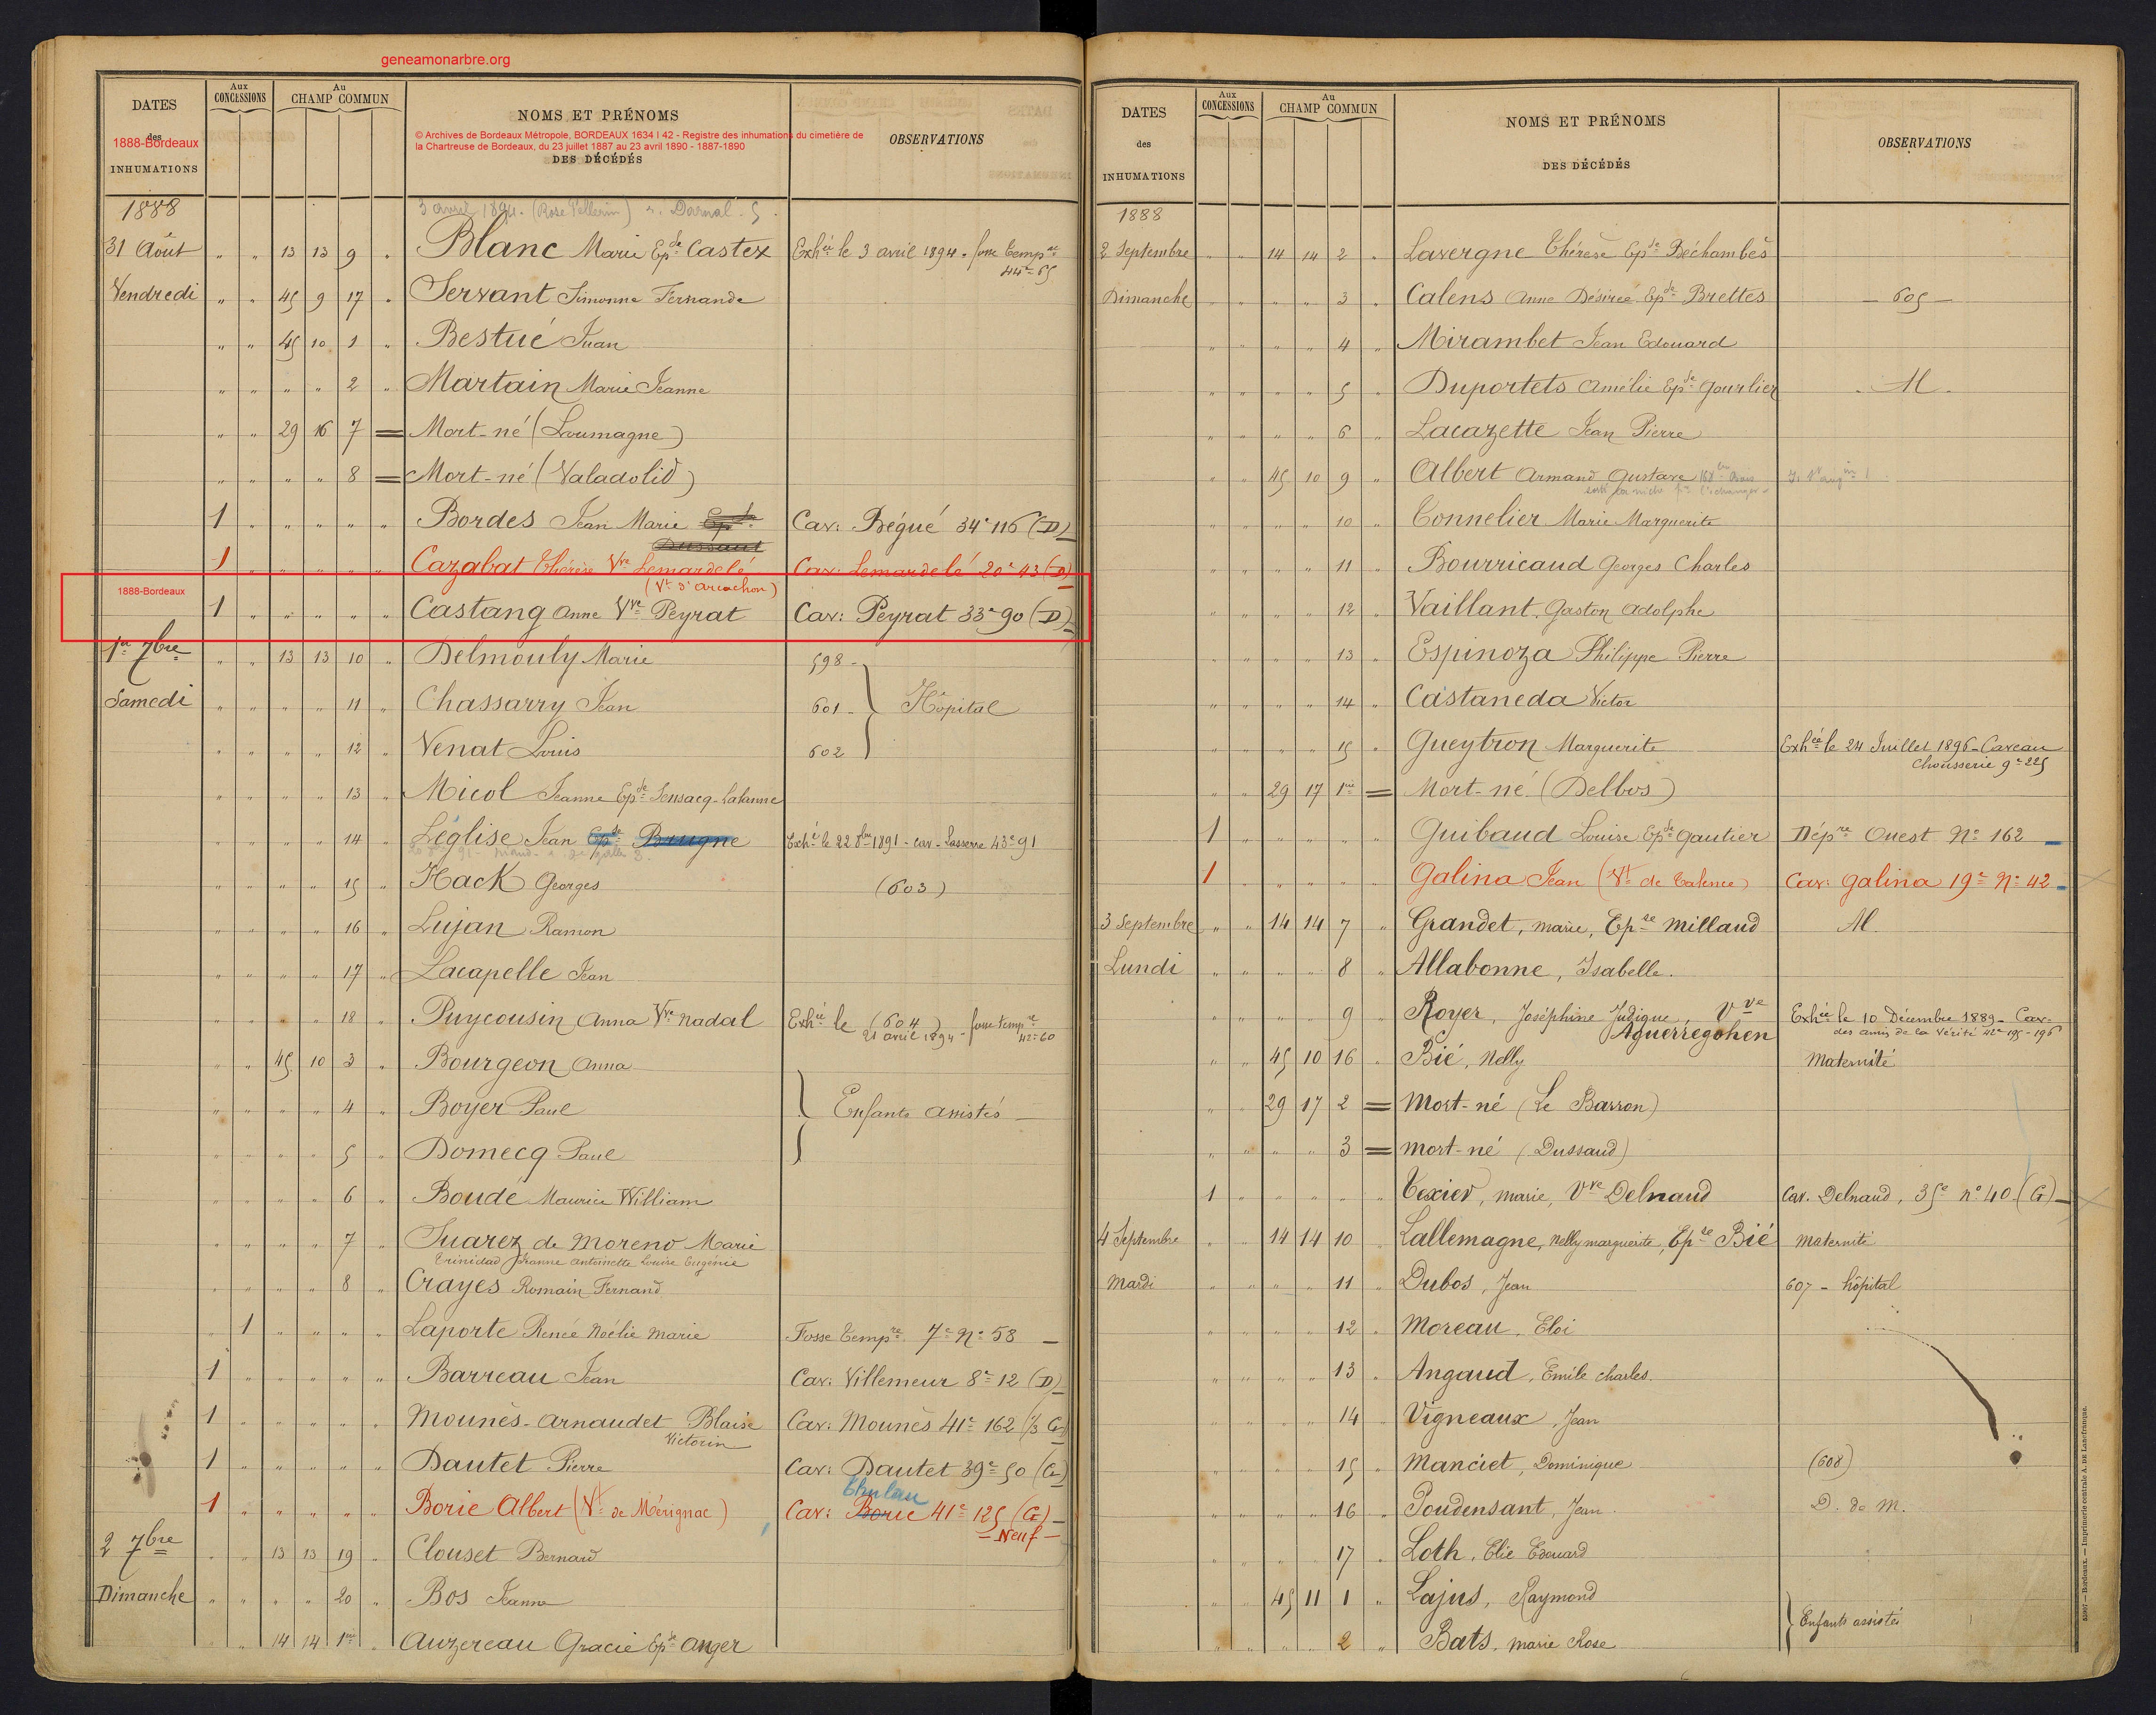 geneamonarbre.org
DATES
des
1888-Bordeaux
INHUMATIONS
Aux
CONCESSIONS
Au
CHAMP COMMUN
NOMS ET PRÉNOMS
© Archives de Bordeaux Métropole, BORDEAUX 1634 I 42 - Registre des inhumations du cimetière de
la Chartreuse de Bordeaux, du 23 juillet 1887 au 23 avril 1890 - 1887-1890
DES DÉCÉDÉS
OBSERVATIONS
1888
3 avril 1894. (Rose Pellerin)
31 Août " " 13 13 9 " Blanc Marie Epse Castex Exhée le 3 avril 1894. fosse tempre
44e 65
Vendredi " " 45 9 17 " Servant Simonne Fernande
" " 45 10 1 " Bestué Juan
" " " " 2 " Martain Marie Jeanne
" " 29 16 7 = Mort-né (Loumagne)
" " " " 8 = Mort-né (Valadolid)
1 " " " " " Bordes Jean Marie Epse Cav: Bégué 34e 116 (D)
Dussaut
1 " " " " " Cazabat Thérèse Vve Lemardelé Cav: Lemardelé 20e 43 (D)
(Vt d'Arcachon)
1888-Bordeaux
1 " " " " " Castang Anne Vve Peyrat Cav: Peyrat 33e 90 (D)
1er 7bre " " 13 13 10 " Delmouly Marie 598
Samedi " " " " 11 " Chassarry Jean 601 Hôpital
" " " " 12 " Venat Louis 602
" " " " 13 " Micol Jeanne Epse Sensacq-Lalanne
" " " " 14 " Léglise Jean Epse Brugne Exhé le 22 8bre 1891 - cav. Lasserre 43e 91
" " " " 15 " Hack Georges (603)
" " " " 16 " Lujan Ramon
" " " " 17 " Lacapelle Jean
" " " " 18 " Puycousin Anna Vve Nadal Exhée le (604) fosse tempre
21 avril 1894 42e 60
" " 45 10 3 " Bourgeon Anna
" " " " 4 " Boyer Paul Enfants assistés
" " " " 5 " Domecq Paul
" " " " 6 " Boudé Maurice William
" " " " 7 " Suarez de Moreno Marie
Trinidad Jeanne Antoinette Louise Eugénie
" " " " 8 " Crayes Romain Fernand
" 1 " " " " Laporte Renée Noélie Marie Fosse Tempre 7e No 58
1 " " " " " Barreau Jean Cav: Villemeur 8e 12 (D)
1 " " " " " Mounès-Arnaudet Blaise Cav: Mounès 41e 162 (½ G)
Victorin
1 " " " " " Dautet Pierre Cav: Dautet 39e 50 (G)
Thulau
1 " " " " " Borie Albert (Vt de Mérignac) Cav: Borie 41e 125 (G)
Neuf
2 7bre " " 13 13 19 " Clouset Bernard
Dimanche " " " " 20 " Bos Jeanne
" " 14 14 1er " Auzereau Gracie Epse Anger
DATES
des
INHUMATIONS
Aux
CONCESSIONS
Au
CHAMP COMMUN
NOMS ET PRÉNOMS
DES DÉCÉDÉS
OBSERVATIONS
1888
2 Septembre " " 14 14 2 " Lavergne Thérèse Epse Béchambès
Dimanche " " " " 3 " Calens Anne Désirée Epse Brettes — 605 —
" " " " 4 " Mirambet Jean Edouard
" " " " 5 " Duportets Amélie Epse Gourlier M
" " " " 6 " Lacazette Jean Pierre
" " 45 10 9 " Albert Armand Gustave
" " " " 10 " Connelier Marie Marguerite
" " " " 11 " Bourricaud Georges Charles
" " " " 12 " Vaillant Gaston Adolphe
" " " " 13 " Espinoza Philippe Pierre
" " " " 14 " Castaneda Victor
" " " " 15 " Gueytron Marguerite Exhée le 24 Juillet 1896 - Caveau
Chousserie 9e 225
" " 29 17 1er = Mort-né (Delbos)
1 " " " " " Guibaud Louise Epse Gautier Dépre Ouest No 162
1 " " " " " Galina Jean (Vt de Talence) Cav: Galina 19e No 42
3 Septembre " " 14 14 7 " Grandet, Marie, Epse Millaud M.
Lundi " " " " 8 " Allabonne, Isabelle.
" " " " 9 " Royer, Joséphine Judique, Vve Exhée le 10 Décembre 1889 - Cav:
Aguerregohen des amis de la Vérité 42e 195-196
" " 45 10 16 " Bié, Nelly Maternité
" " 29 17 2 = Mort-né (Le Barron)
" " " " 3 = mort-né (Dussaud)
1 " " " " " Texier, marie, Vve Delnaud Cav. Delnaud, 35e no 40 (G)
4 Septembre " " 14 14 10 Lallemagne, Nelly marguerite, Epse Bié Maternité
Mardi " " " " 11 " Dubos, Jean 607 - hôpital
" " " " 12 " Moreau, Eloi
" " " " 13 " Angaud, Emile charles.
" " " " 14 " Vigneaux, Jean
" " " " 15 " Manciet, Dominique (608)
" " " " 16 " Poudensant, Jean. D. de M.
" " " " 17 " Loth, Elie Edouard
" " 45 11 1 " Lajus, Raymond
" " " " 2 " Bats, marie Rose Enfants assistés
53907 — Bordeaux. — Imprimerie centrale A. DE Lanefranque.